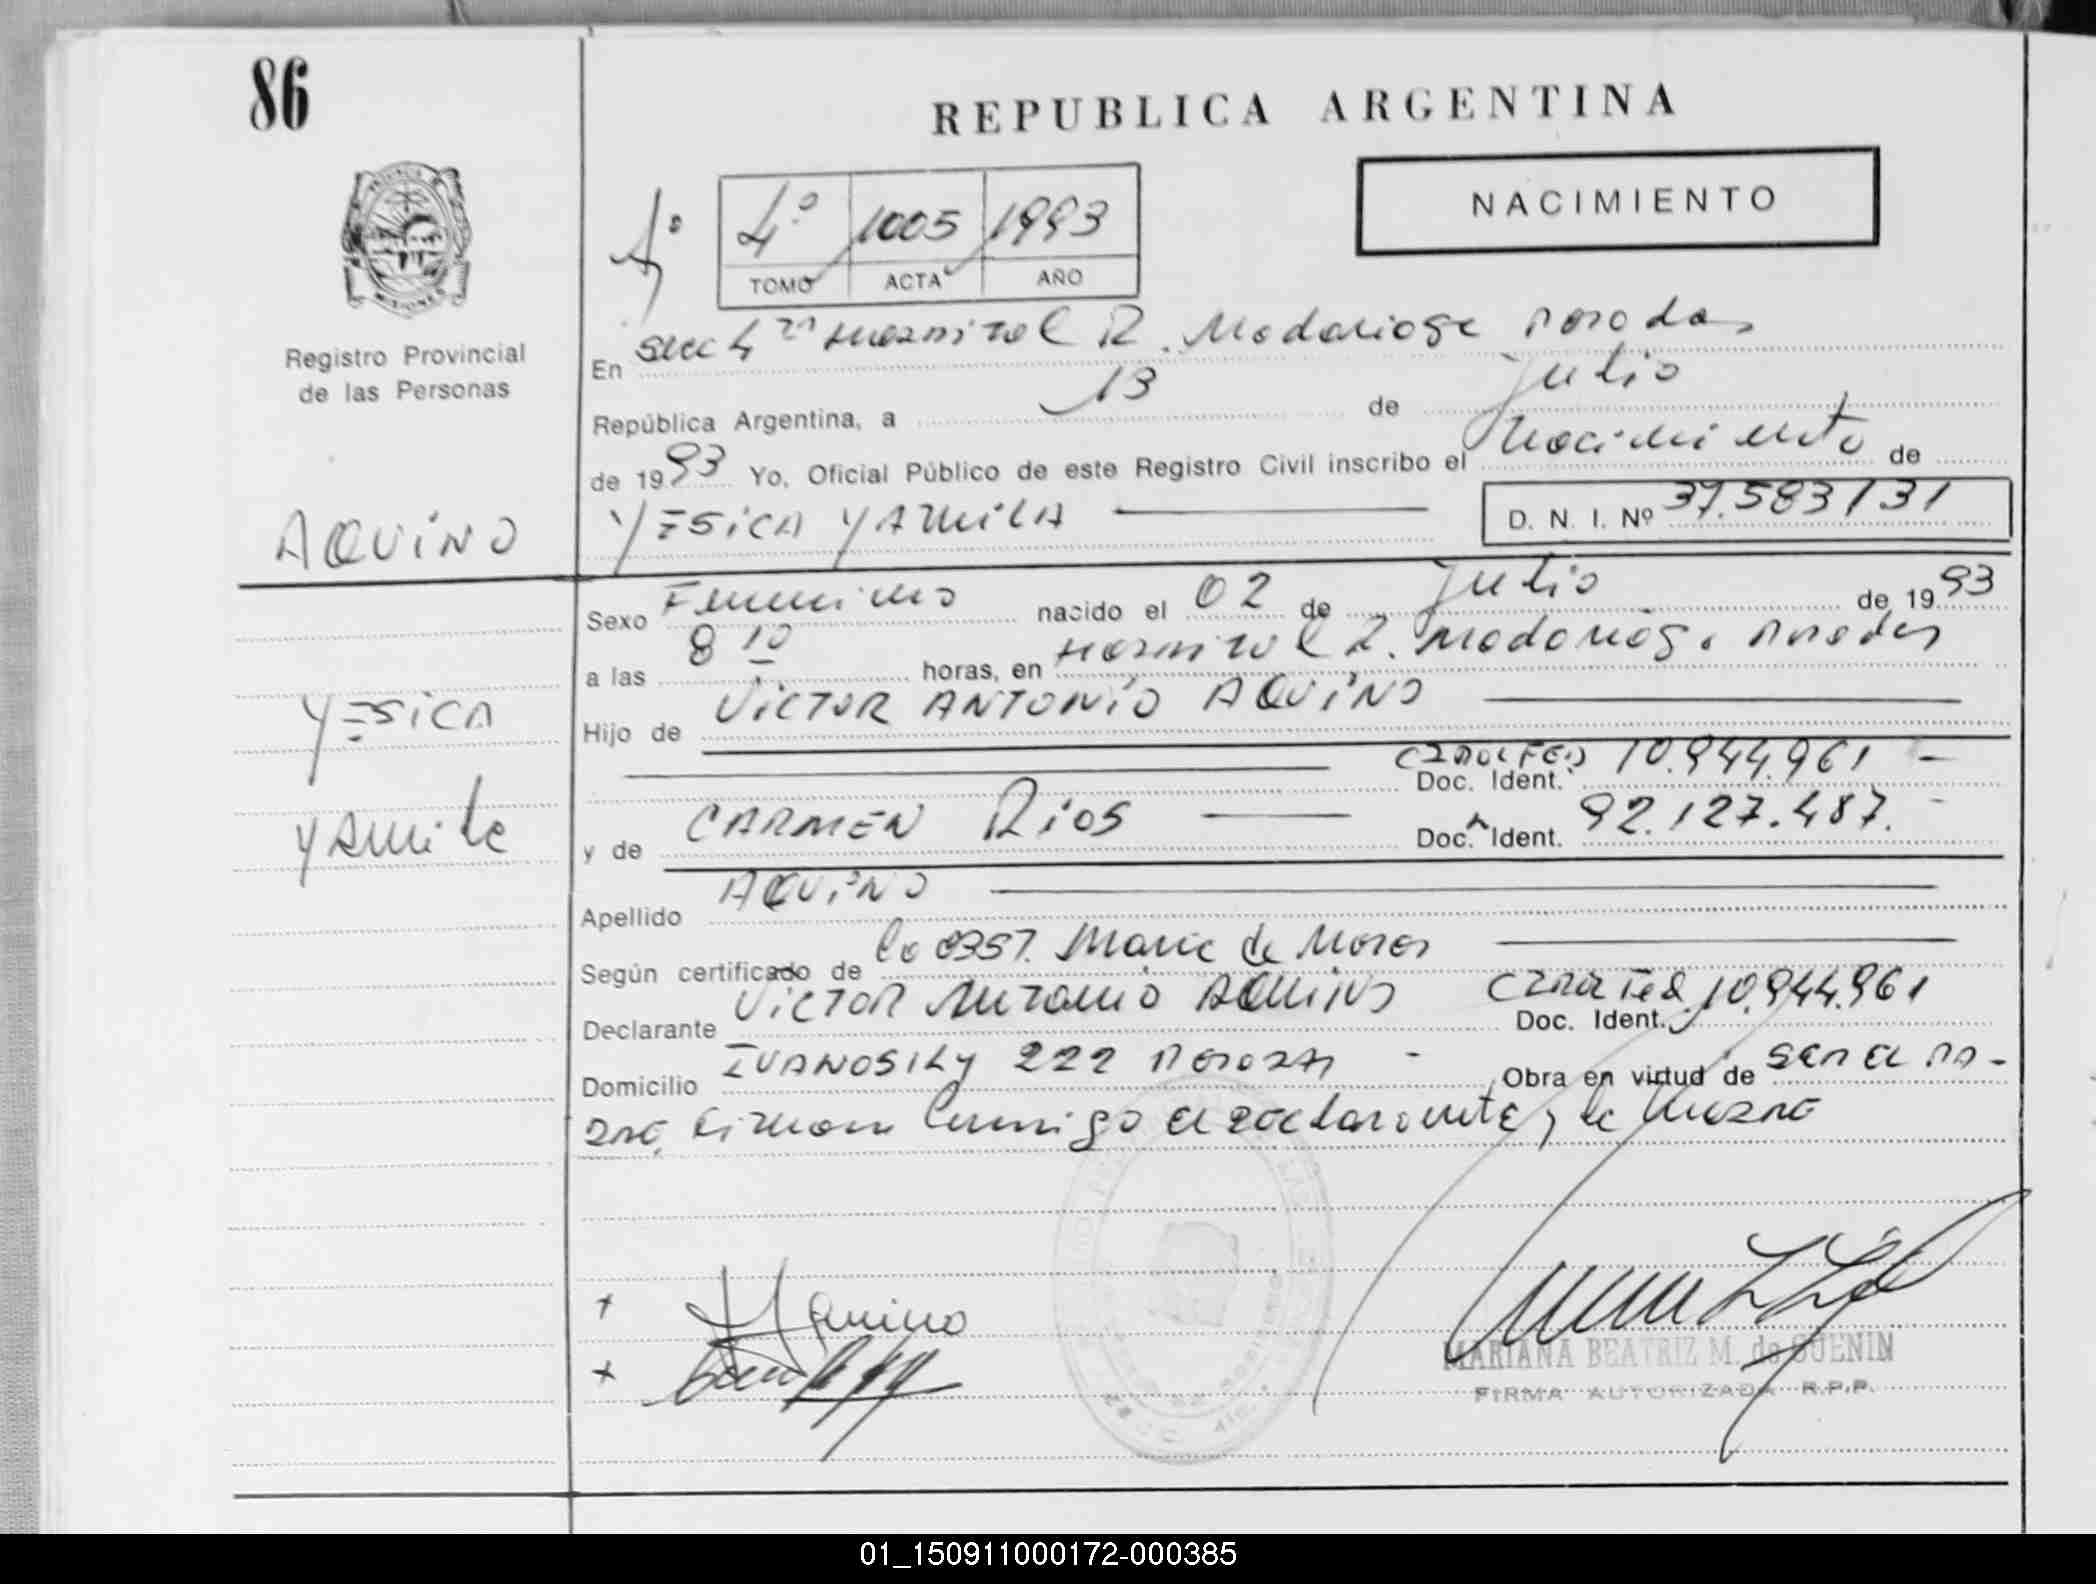 86
REPUBLICA ARGENTINA
NACIMIENTO
4º
4º 1005 1993
TOMO ACTA AÑO
PROVINCIA DE MISIONES
Registro Provincial
de las Personas
En Secc 4ª Hospital R. Madariaga Posadas
República Argentina, a 13 de Julio
de 1993 Yo, Oficial Público de este Registro Civil inscribo el Nacimiento de
YESICA YAMILA
D. N. I. Nº 37.583131
AQUINO
YESICA
YAMILA
Sexo Femenino nacido el 02 de Julio de 1993
a las 8 10 horas, en Hospital R. Madariaga Posadas
Hijo de VICTOR ANTONIO AQUINO
Doc. Ident. 10.944.961
y de CARMEN RIOS Doc. Ident. 92.127.487.
Apellido AQUINO
Según certificado de la obst. Maria de Moras
Declarante VICTOR ANTONIO AQUINO Doc. Ident. 10.944.961
Domicilio IVANOSKY 222 Posadas Obra en virtud de ser el pa-
dre, firman conmigo el declarante y la madre
Aquino
MARIANA BEATRIZ M. de GUENIN
FIRMA AUTORIZADA R.P.P.
01_150911000172-000385